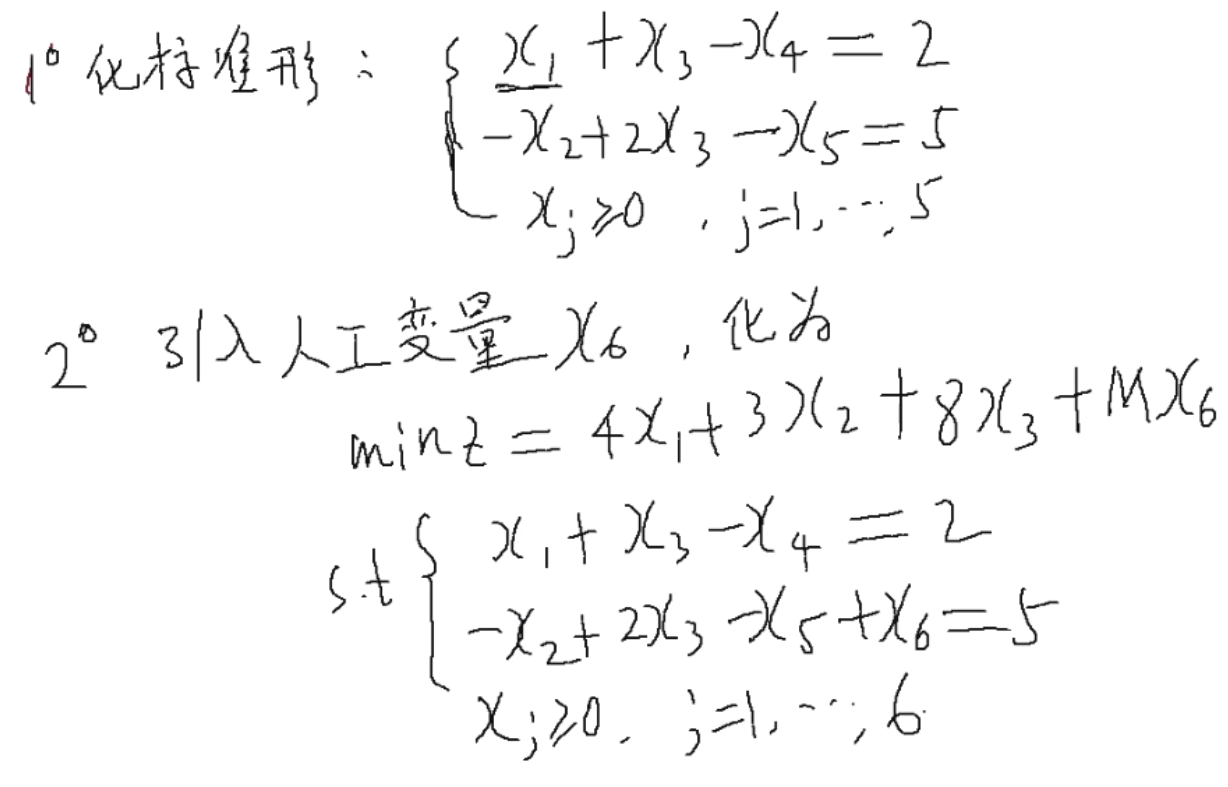 1° 化标准形: { x₁ + x₃ - x₄ = 2
-x₂ + 2x₃ - x₅ = 5
xⱼ ≥ 0 , j=1, ⋯, 5
2° 引入人工变量 x₆ , 化为
min z = 4x₁ + 3x₂ + 8x₃ + Mx₆
s.t { x₁ + x₃ - x₄ = 2
-x₂ + 2x₃ - x₅ + x₆ = 5
xⱼ ≥ 0 . j=1, ⋯, 6